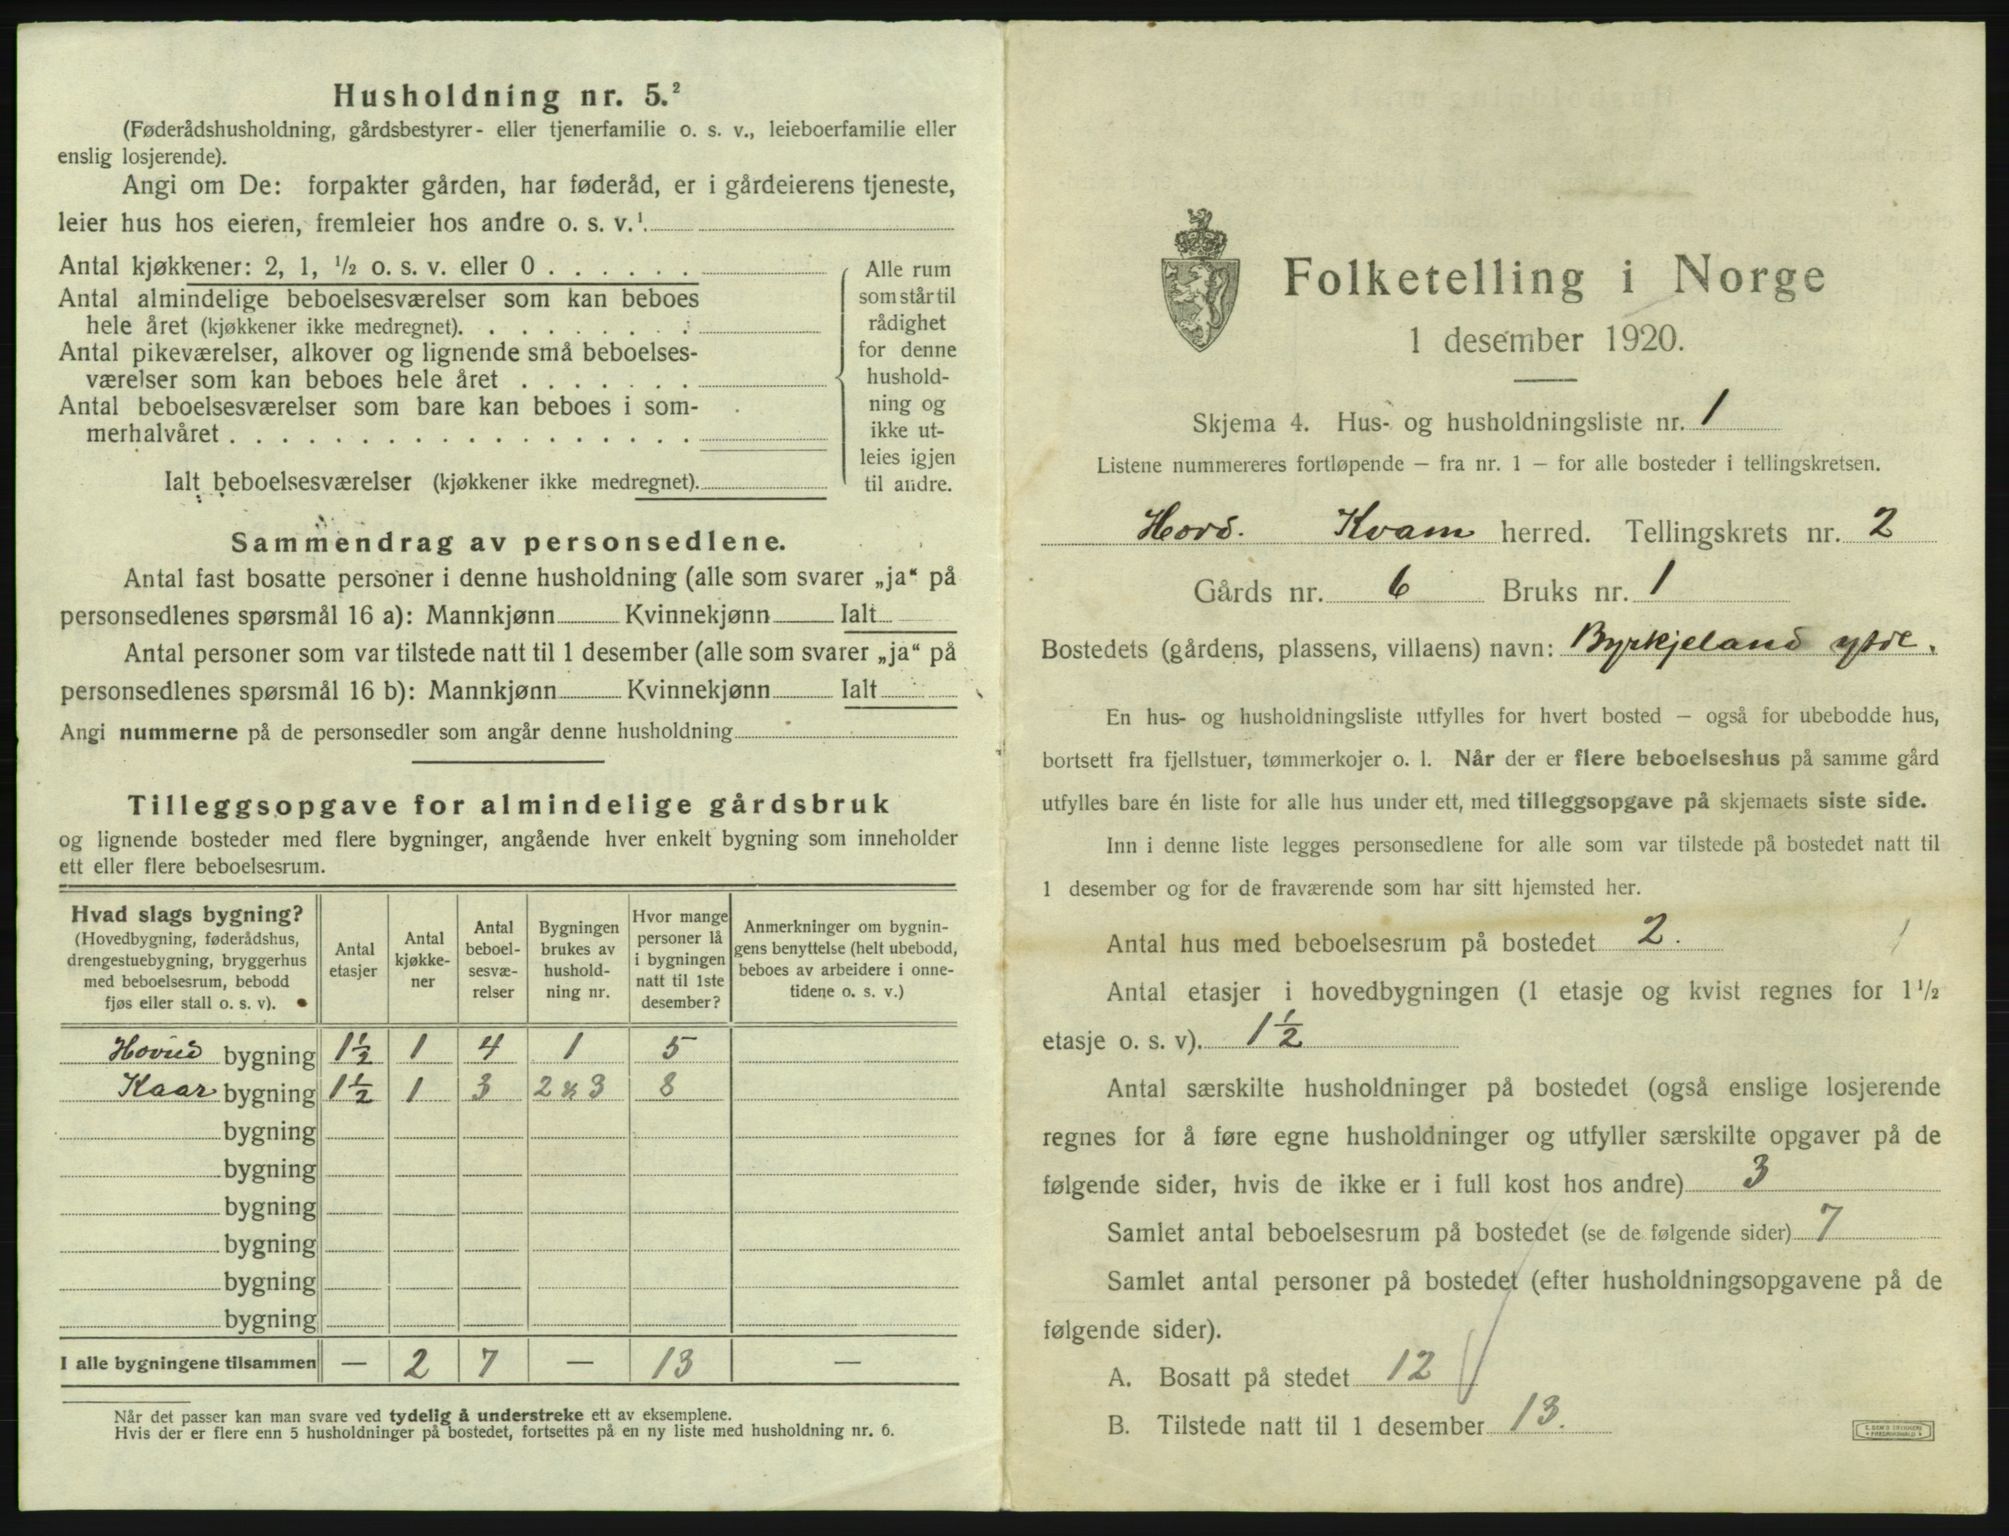 Husholdning nr. 5.²
(Føderådshusholdning, gårdsbestyrer- eller tjenerfamilie o. s. v., leieboerfamilie eller
enslig losjerende).
Angi om De: forpakter gården, har føderåd, er i gårdeierens tjeneste,
leier hus hos eieren, fremleier hos andre o. s. v.¹.
Antal kjøkkener: 2, 1, ½ o. s. v. eller 0 . . . . . .
Antal almindelige beboelsesværelser som kan beboes
hele året (kjøkkener ikke medregnet). . . . . . . . .
Antal pikeværelser, alkover og lignende små beboelses-
værelser som kan beboes hele året . . . . . . .
Antal beboelsesværelser som bare kan beboes i som-
merhalvåret . . . . . . . . . . . . . . . . . .
Ialt beboelsesværelser (kjøkkener ikke medregnet).
Alle rum
som står til
rådighet
for denne
hushold-
ning og
ikke ut-
leies igjen
til andre.
Sammendrag av personsedlene.
Antal fast bosatte personer i denne husholdning (alle som svarer „ja“ på
personsedlenes spørsmål 16 a): Mannkjønn Kvinnekjønn Ialt
Antal personer som var tilstede natt til 1 desember (alle som svarer „ja“ på
personsedlenes spørsmål 16 b): Mannkjønn Kvinnekjønn Ialt
Angi nummerne på de personsedler som angår denne husholdning
Tilleggsopgave for almindelige gårdsbruk
og lignende bosteder med flere bygninger, angående hver enkelt bygning som inneholder
ett eller flere beboelsesrum.
Hvad slags bygning?
(Hovedbygning, føderådshus,
drengestuebygning, bryggerhus
med beboelsesrum, bebodd
fjøs eller stall o. s. v).
Antal
etasjer
Antal
kjøkke-
ner
Antal
beboel-
sesvæ-
relser
Bygningen
brukes av
hushold-
ning nr.
Hvor mange
personer lå
i bygningen
natt til 1ste
desember?
Anmerkninger om bygnin-
gens benyttelse (helt ubebodd,
beboes av arbeidere i onne-
tidene o. s. v.)
Hoved bygning 1½ 1 4 1 5
Kaar bygning 1½ 1 3 2 & 3 8
bygning
bygning
bygning
bygning
bygning
bygning
I alle bygningene tilsammen — 2 7 — 13 —
Når det passer kan man svare ved tydelig å understreke ett av eksemplene.
Hvis der er flere enn 5 husholdninger på bostedet, fortsettes på en ny liste med husholdning nr. 6.
Folketelling i Norge
1 desember 1920.
Skjema 4. Hus- og husholdningsliste nr. 1
Listene nummereres fortløpende — fra nr. 1 — for alle bosteder i tellingskretsen.
Hord. Kvam herred. Tellingskrets nr. 2
Gårds nr. 6 Bruks nr. 1
Bostedets (gårdens, plassens, villaens) navn: Byrkjeland ytre.
En hus- og husholdningsliste utfylles for hvert bosted — også for ubebodde hus,
bortsett fra fjellstuer, tømmerkojer o. l. Når der er flere beboelseshus på samme gård
utfylles bare én liste for alle hus under ett, med tilleggsopgave på skjemaets siste side.
Inn i denne liste legges personsedlene for alle som var tilstede på bostedet natt til
1 desember og for de fraværende som har sitt hjemsted her.
Antal hus med beboelsesrum på bostedet 2.
Antal etasjer i hovedbygningen (1 etasje og kvist regnes for 1½
etasje o. s. v). 1½
Antal særskilte husholdninger på bostedet (også enslige losjerende
regnes for å føre egne husholdninger og utfyller særskilte opgaver på de
følgende sider, hvis de ikke er i full kost hos andre) 3
Samlet antal beboelsesrum på bostedet (se de følgende sider) 7
Samlet antal personer på bostedet (efter husholdningsopgavene på de
følgende sider).
A. Bosatt på stedet 12
B. Tilstede natt til 1 desember 13.